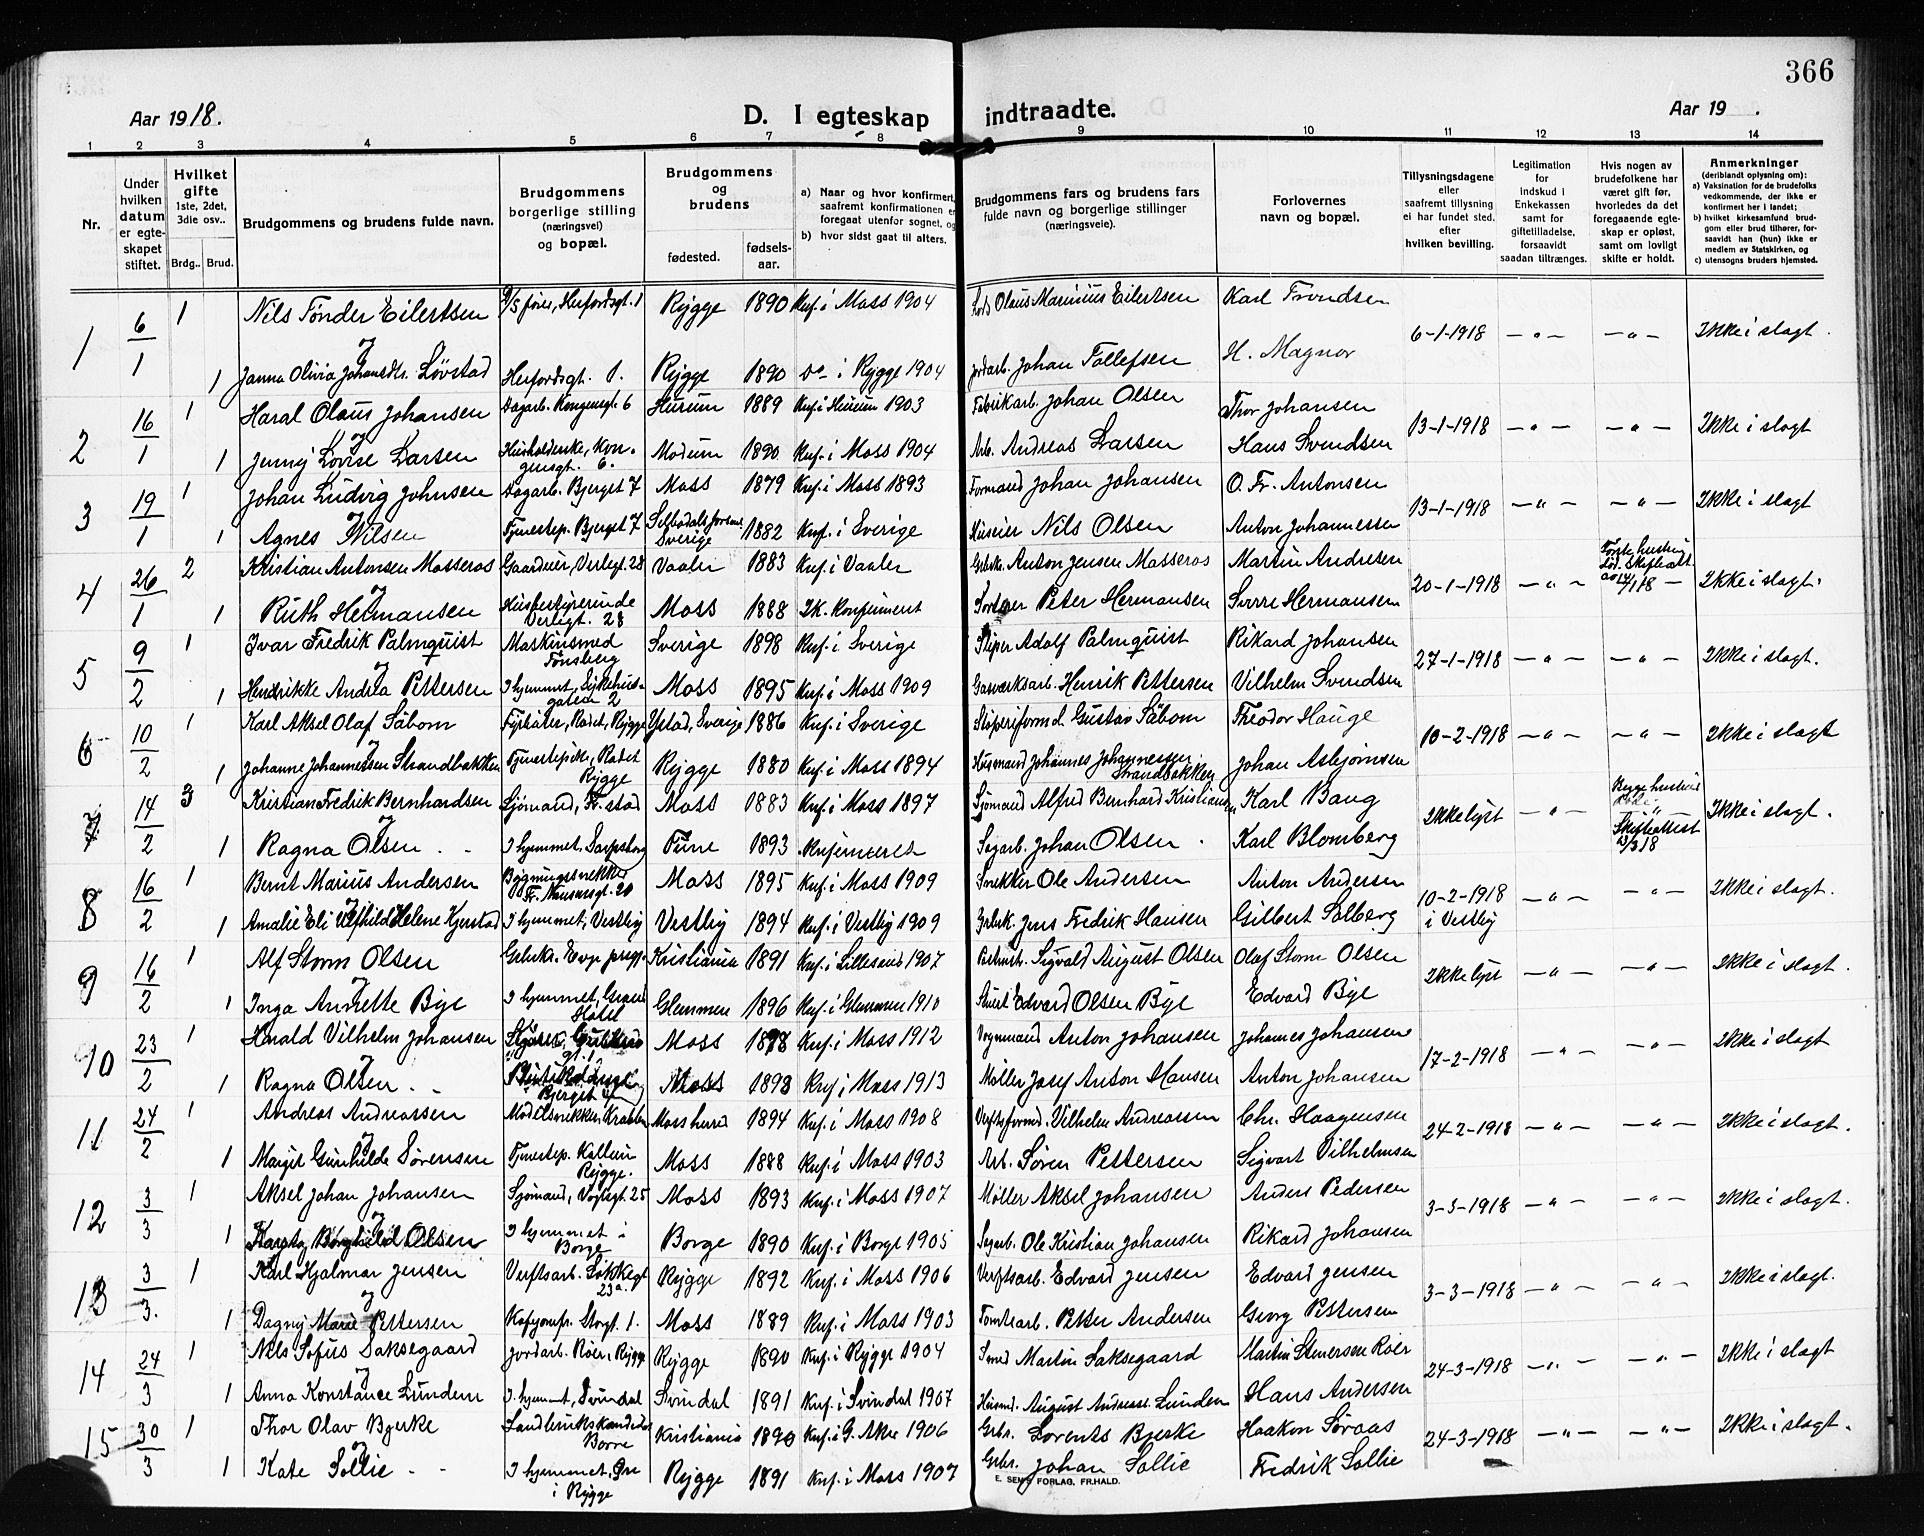 366
Aar 1918.
D. I egteskap indtraadte.
Aar 19 .
1 2 3 4 5 6 7 8 9 10 11 12 13 14
Nr.
Under hvilken datum er egteskapet stiftet.
Hvilket gifte 1ste, 2det, 3die osv..
Brdg.. Brud.
Brudgommens og brudens fulde navn.
Brudgommens borgerlige stilling (næringsvei) og bopæl.
Brudgommens og brudens
fødested.
fødsels-aar.
a) Naar og hvor konfirmert, saafremt konfirmationen er foregaat utenfor sognet, og
b) hvor sidst gaat til alters.
Brudgommens fars og brudens fars fulde navn og borgerlige stillinger (næringsveie).
Forlovernes navn og bopæl.
Tillysningsdagene eller saafremt tillysning ei har fundet sted. efter hvilken bevilling.
Legitimation for indskud i Enkekassen samt for giftetilladelse, forsaavidt saadan tiltrænges.
Hvis nogen av brudefolkene har været gift før, hvorledes da det foregaaende egteskap er opløst, samt om lovligt skifte er holdt.
Anmerkninger (deriblandt oplysning om):
a) Vaksination for de brudefolks vedkommende, der ikke er konfirmert her i landet;
b) hvilket kirkesamfund brudgom eller brud tilhører, forsaavidt han (hun) ikke er medlem av Statskirken, og
c) utensogns bruders hjemsted.
1 6/1 1 Nils Tønder Eilertsen Herfordsgt. 1 Rygge 1890 Knf. i Moss 1904 Olaus Marinius Eilertsen Karl Trondsen 6-1-1918 — " — — " — Ikke i slagt.
og
1 Janna Olivia Johansdtr. Løvstad Herfordsgt. 1. Rygge 1890 Do– i Rygge 1904 Jordarb. Johan Tollefsen H. Magnor
2 16/1 1 Haral Olaus Johansen Dagarb. Kongensgt. 6 Hurum 1889 Knf. i Hurum 1903 Fabrikarb. Johan Olsen Thor Johansen 13-1-1918 — " — — " — Ikke i slagt
og
1 Jenny Lovise Larsen Husholderske, Kongensgt. 6. Modum 1890 Knf. i Moss 1904 Arb. Andreas Larsen Hans Svendsen
3 19/1 1 Johan Ludvig Johnsen Dagarb. Bjerget 7 Moss 1879 Knf. i Moss 1893 Formand Johan Johansen O. Fr. Antonsen 13-1-1918 — " — — " — Ikke i slagt
og
1 Agnes Nilsen Tjenestep. Bjerget 7 Sverige 1882 Knf. i Sverige Huseier Nils Olsen Anton Johannessen
4 26/1 2 Kristian Antonsen Mosseros Gaardeier, Verlegt. 28 Vaaler 1883 Knf. i Vaaler Gbrk. Anton Jensen Mosseros Martin Andresen 20-1-1918 — " — Første hustru død. Skifteatt. 14/1 18 — Ikke i slagt.
og
1 Ruth Hermansen Husbestyrerinde Verlegt. 28 Moss 1888 Ik. konfirmert Peter Hermansen Sverre Hermansen
5 9/2 1 Ivar Fredrik Palmquist Maskinsmed Tønsberg Sverige 1898 Knf. i Sverige Støper Adolf Palmquist Rikard Johansen 27-1-1918 — " — — " — Ikke i slagt.
og
1 Hendrikke Andrea Pettersen I hjemmet, Sykehusgaten 2 Moss 1895 Knf. i Moss 1909 Gasverksarb. Henrik Pettersen Vilhelm Svendsen
6 10/2 1 Karl Aksel Olaf Säbom Fyrbøter, Radet, Rygge Ystad, Sverige 1886 Knf. i Sverige Støperiformd. Gustav Säbom Theodor Hauge 10-2-1918 — " — — " — Ikke i slagt
og
1 Johanne Johannessen Strandbakken Tjenestepike, Radet Rygge Rygge 1880 Knf. i Moss 1894 Husmand Johannes Johannessen Strandbakken Johan Asbjørnsen
7 14/2 3 Kristian Fredrik Bernhardsen Sjømand, Fr.stad Moss 1883 Knf. i Moss 1897 Sjømand Alfred Bernhard Kristiansen Karl Bang Ikke lyst — " — Begge hustruer døde. Skifteattest 13/2 18 Ikke i slagt.
og
1 Ragna Olsen I hjemmet, Sarpsborg Tune 1893 Knf. Sagarb. Johan Olsen Karl Blomberg
8 16/2 1 Bernt Marius Andersen Bygningssnekker Fr. Nansensgt. 20 Moss 1895 Knf. i Moss 1909 Snekker Ole Andersen Anton Andersen 10-2-1918 i Vestby — " — — " — Ikke i slagt.
og
1 Amalie Eli Alfhild Helene Kjerstad I hjemmet, Vestby Vestby 1894 Knf. i Vestby 1909 Gbrk. Jens Fredrik Hansen Gilbert Solberg
9 16/2 1 Alf Storm Olsen Kristiania 1891 Knf. i Lillesand 1907 Sigvald August Olsen Olaf Storm Olsen Ikke lyst — " — — " — Ikke i slagt.
og
1 Inga Annette Bye I hjemmet, Grand Hotel Glemmen 1896 Knf. i Glemmen 1910 Edvard Olsen Bye Edvard Bye
10 23/2 1 Harald Vilhelm Johansen Moss 1898 Knf. i Moss 1912 Vognmand Anton Johansen Johannes Johansen 17-2-1918 — " — — " — Ikke i slagt
og
1 Ragna Olsen Bjerget Moss 1898 Knf. i Moss 1913 Møller Josef Anton Hansen Anton Johansen
11 24/2 1 Andreas Andreassen Modelsnekker, Krabben Moss herred 1894 Knf. i Moss 1908 Verftsformd. Vilhelm Andreassen Chr. Haagensen 24-2-1918 — " — — " — Ikke i slagt.
og
1 Margit Gunhilde Sørensen Tjenestep. Kallum Rygge. Moss 1888 Knf. i Moss 1903 Arb. Søren Pettersen Sigvart Vilhelmsen
12 3/3 1 Aksel Johan Johansen Sjømand, Vogtsgt. 25 Moss 1893 Knf. i Moss 1907 Møller Aksel Johansen Anders Pedersen 3-3-1918 — " — — " — Ikke i slagt.
og
1 Borghild Olsen I hjemmet i Borge Borge 1890 Knf. i Borge 1905 Sagarb. Ole Kristian Johansen Rikard Johansen
13 3/3. 1 Karl Hjalmar Jensen Verftsarb. Løkkegt 23a. Rygge 1892 Knf. i Moss 1906 Verftsarb. Edvard Jensen Edvard Jensen 3-3-1918 — " — — " — Ikke i slagt.
og
1 Dagny Marie Pettersen Kafejomfr. Storgt. 1. Moss 1889 Knf. i Moss 1903 Tomtearb. Petter Andersen Georg Pettersen
14 24/3 1 Nils Sofus Saksegaard Jordarb. Roer, Rygge Rygge 1890 Knf. i Rygge 1904 Smed Martin Saksegaard Martin Stenersen Roer 24-3-1918 — " — — " — Ikke i slagt
og
1 Anna Konstance Lunden I hjemmet, Svindal Svindal 1891 Knf. i Svindal 1907 Husmd. August Andreas. Lunden Hans Andersen
15 30/3 1 Thor Olav Bjerke Landbrukskandidat Borre Kristiania 1890 Knf. i G. Aker 1906 Grbr. Lorents Bjerke Haakon Søraas 24-3-1918 — " — — " — Ikke i slagt.
og
1 Kate Sollie I hjemmet, Øre i Rygge Rygge 1891 Knf. i Moss 1907 Grbr. Johan Sollie Fredrik Sollie
E. SEM'S FORLAG, FR.HALD.